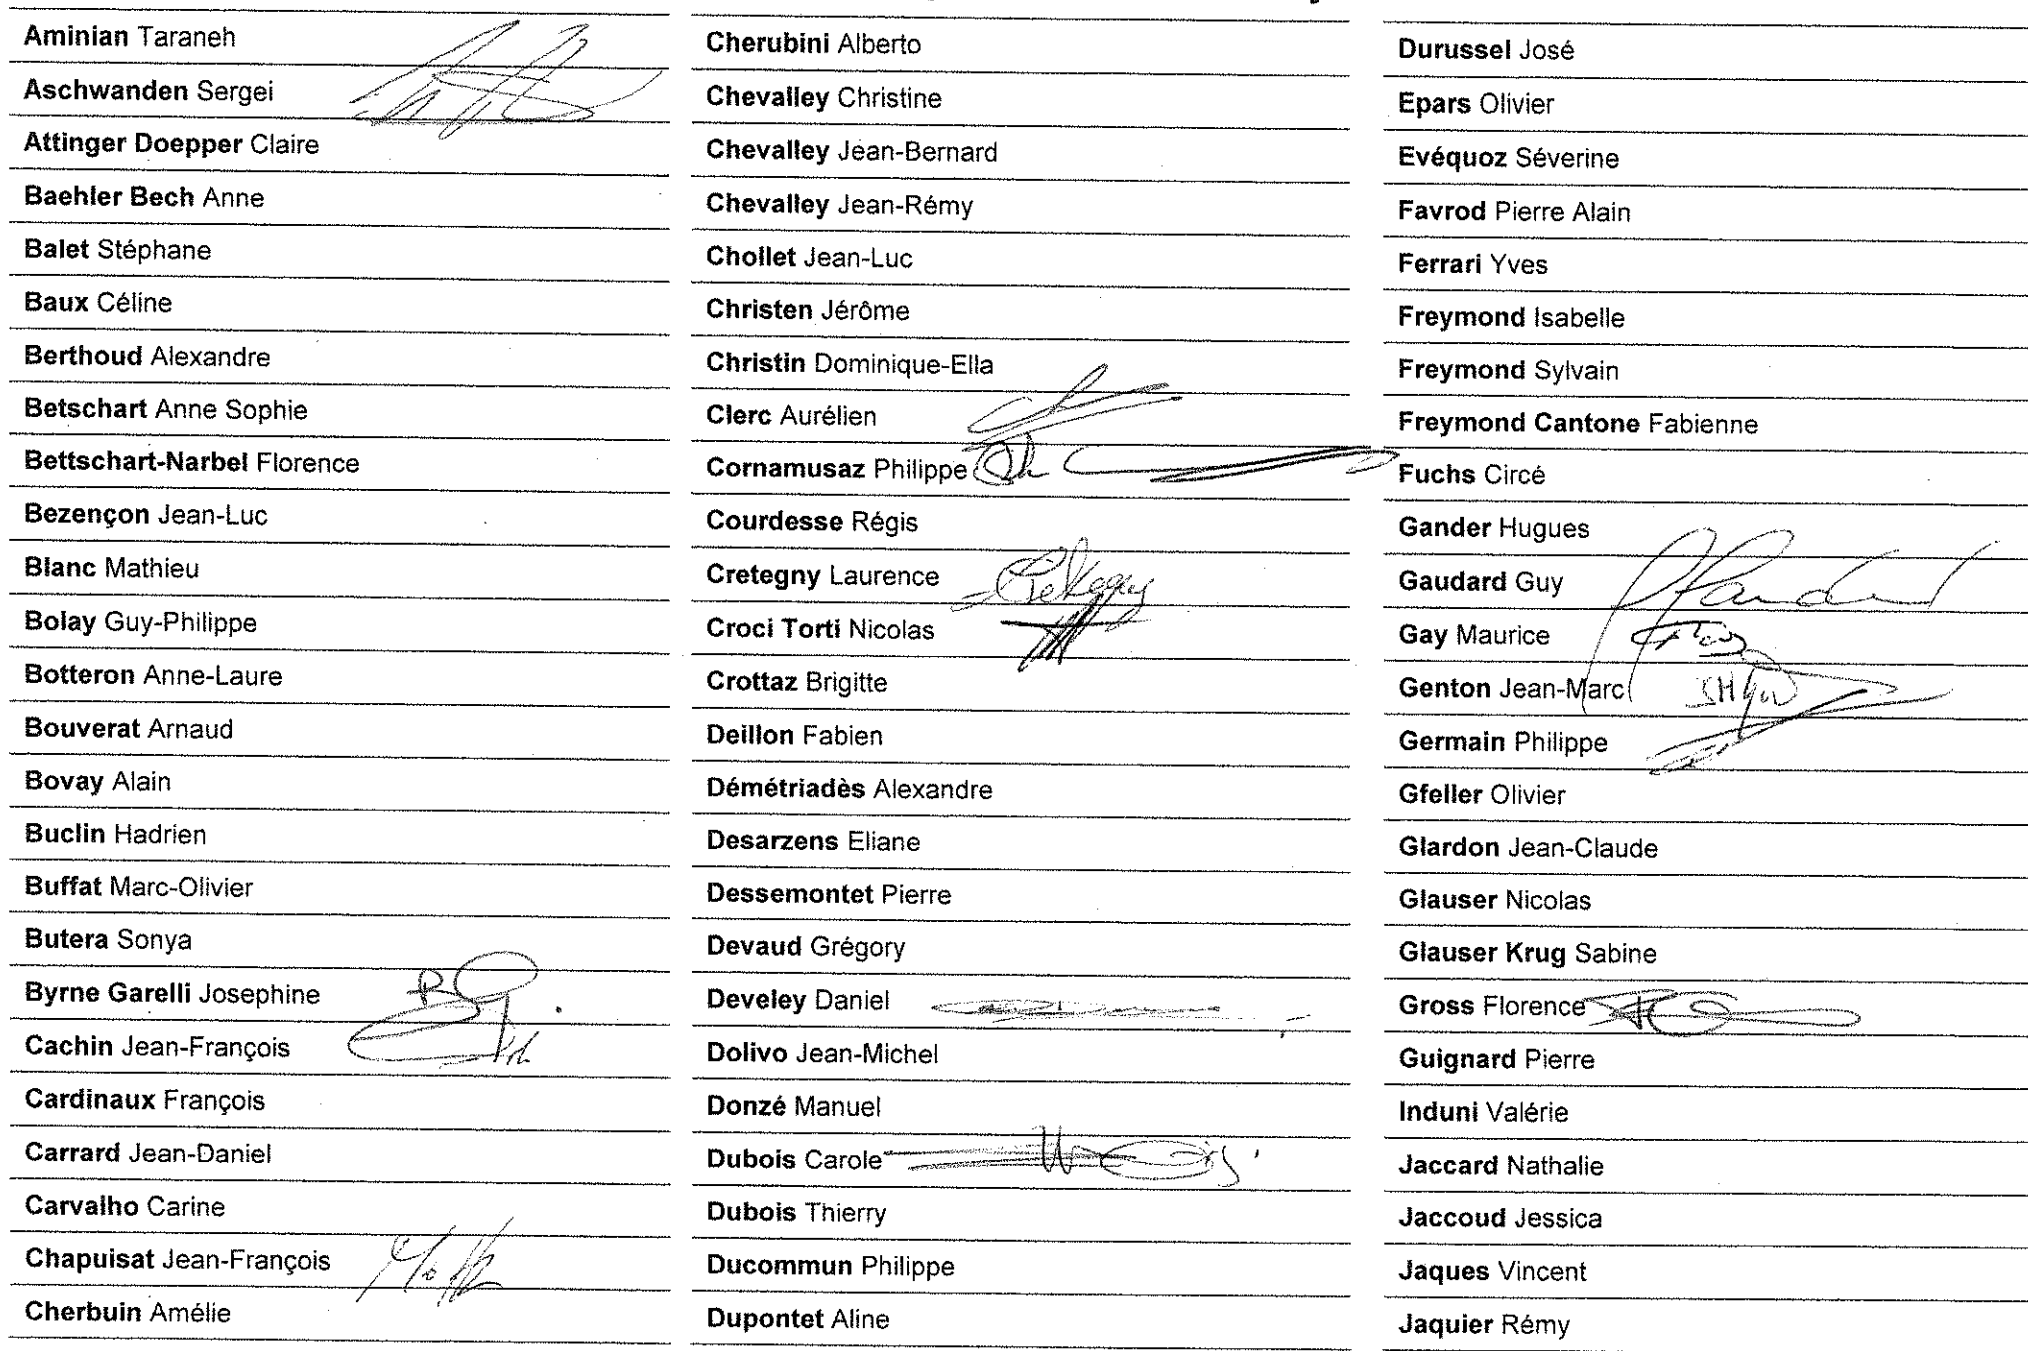 Aminian Taraneh
Aschwanden Sergei
Attinger Doepper Claire
Baehler Bech Anne
Balet Stéphane
Baux Céline
Berthoud Alexandre
Betschart Anne Sophie
Bettschart-Narbel Florence
Bezençon Jean-Luc
Blanc Mathieu
Bolay Guy-Philippe
Botteron Anne-Laure
Bouverat Arnaud
Bovay Alain
Buclin Hadrien
Buffat Marc-Olivier
Butera Sonya
Byrne Garelli Josephine
Cachin Jean-François
Cardinaux François
Carrard Jean-Daniel
Carvalho Carine
Chapuisat Jean-François
Cherbuin Amélie
Cherubini Alberto
Chevalley Christine
Chevalley Jean-Bernard
Chevalley Jean-Rémy
Chollet Jean-Luc
Christen Jérôme
Christin Dominique-Ella
Clerc Aurélien
Cornamusaz Philippe
Courdesse Régis
Cretegny Laurence Cretegny
Croci Torti Nicolas
Crottaz Brigitte
Deillon Fabien
Démétriadès Alexandre
Desarzens Eliane
Dessemontet Pierre
Devaud Grégory
Develey Daniel
Dolivo Jean-Michel
Donzé Manuel
Dubois Carole
Dubois Thierry
Ducommun Philippe
Dupontet Aline
Durussel José
Epars Olivier
Evéquoz Séverine
Favrod Pierre Alain
Ferrari Yves
Freymond Isabelle
Freymond Sylvain
Freymond Cantone Fabienne
Fuchs Circé
Gander Hugues
Gaudard Guy
Gay Maurice
Genton Jean-Marc
Germain Philippe
Gfeller Olivier
Glardon Jean-Claude
Glauser Nicolas
Glauser Krug Sabine
Gross Florence
Guignard Pierre
Induni Valérie
Jaccard Nathalie
Jaccoud Jessica
Jaques Vincent
Jaquier Rémy